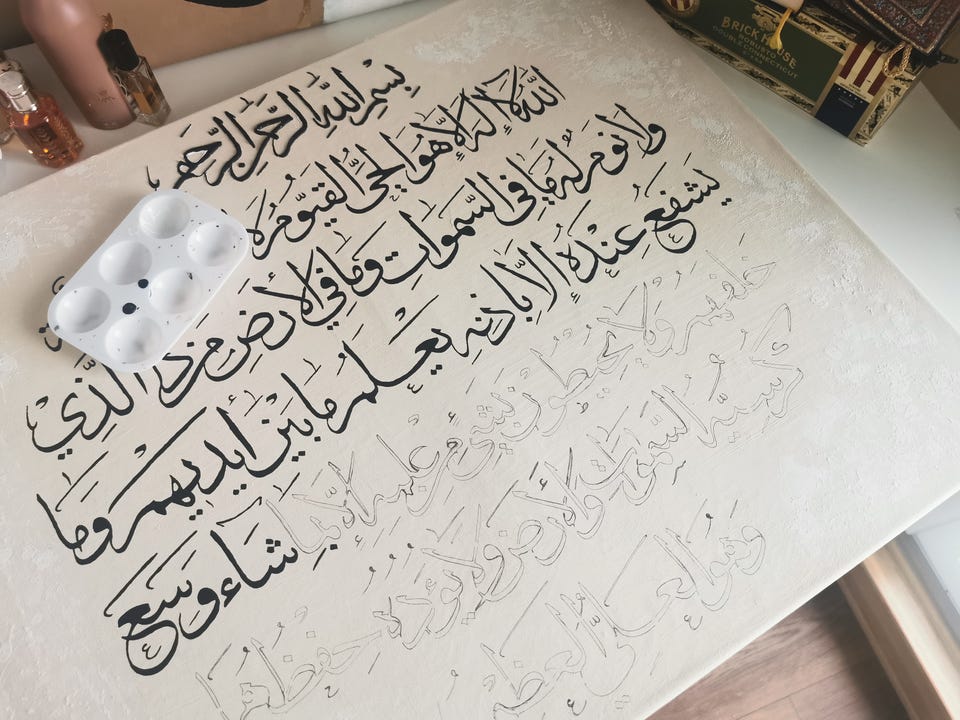 بسم الله الرحمن الرحيم
الله لا إله إلا هو الحي القيوم لا
ولا نوم له ما في السموات وما في الأرض من ذا الذي
يشفع عنده إلا بإذنه يعلم ما بين أيديهم وما
خلفهم ولا يحيطون بشيء من علمه إلا بما شاء وسع
كرسيه السموات والأرض ولا يؤده حفظهما
وهو العلي العظيم
BRICK HOUSE
DOUBLE CONNECTICUT